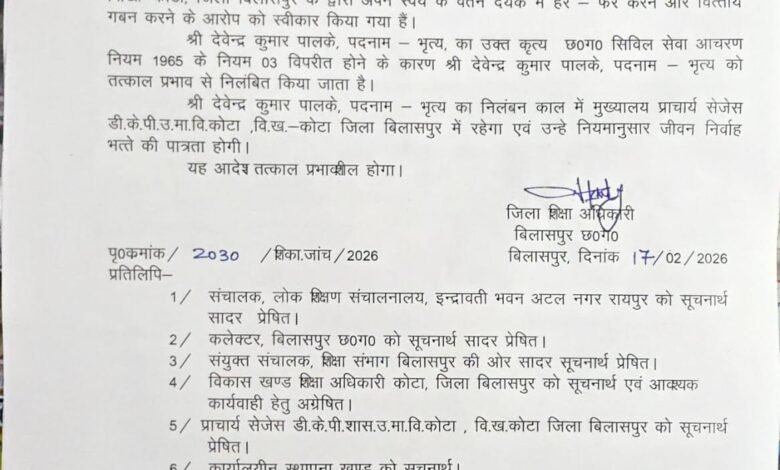 जिला बिलासपुर के द्वारा अपने स्वयं के वेतन देयक में हेर – फेर करने और वित्तीय
गबन करने के आरोप को स्वीकार किया गया हैं।
श्री देवेन्द्र कुमार पालके, पदनाम – भृत्य, का उक्त कृत्य छ0ग0 सिविल सेवा आचरण
नियम 1965 के नियम 03 विपरीत होने के कारण श्री देवेन्द्र कुमार पालके, पदनाम – भृत्य को
तत्काल प्रभाव से निलंबित किया जाता है।
श्री देवेन्द्र कुमार पालके, पदनाम – भृत्य का निलंबन काल में मुख्यालय प्राचार्य सेजेस
डी.के.पी.उ.मा.वि.कोटा ,वि.ख.–कोटा जिला बिलासपुर में रहेगा एवं उन्हे नियमानुसार जीवन निर्वाह
भत्ते की पात्रता होगी।
यह आदेश तत्काल प्रभावशील होगा।
जिला शिक्षा अधिकारी
बिलासपुर छ0ग0
पृ0कमांक/ 2030 /शिका.जांच/2026
बिलासपुर, दिनांक 17/02/2026
प्रतिलिपि–
1/ संचालक, लोक शिक्षण संचालनालय, इन्द्रावती भवन अटल नगर रायपुर को सूचनार्थ
सादर प्रेषित।
2/ कलेक्टर, बिलासपुर छ0ग0 को सूचनार्थ सादर प्रेषित।
3/ संयुक्त संचालक, शिक्षा संभाग बिलासपुर की ओर सादर सूचनार्थ प्रेषित।
4/ विकास खण्ड शिक्षा अधिकारी कोटा, जिला बिलासपुर को सूचनार्थ एवं आवश्यक
कार्यवाही हेतु अग्रेषित।
5/ प्राचार्य सेजेस डी.के.पी.शास.उ.मा.वि.कोटा , वि.ख.कोटा जिला बिलासपुर को सूचनार्थ
प्रेषित।
6/ कार्यालयीन स्थापना खण्ड को सूचनार्थ।